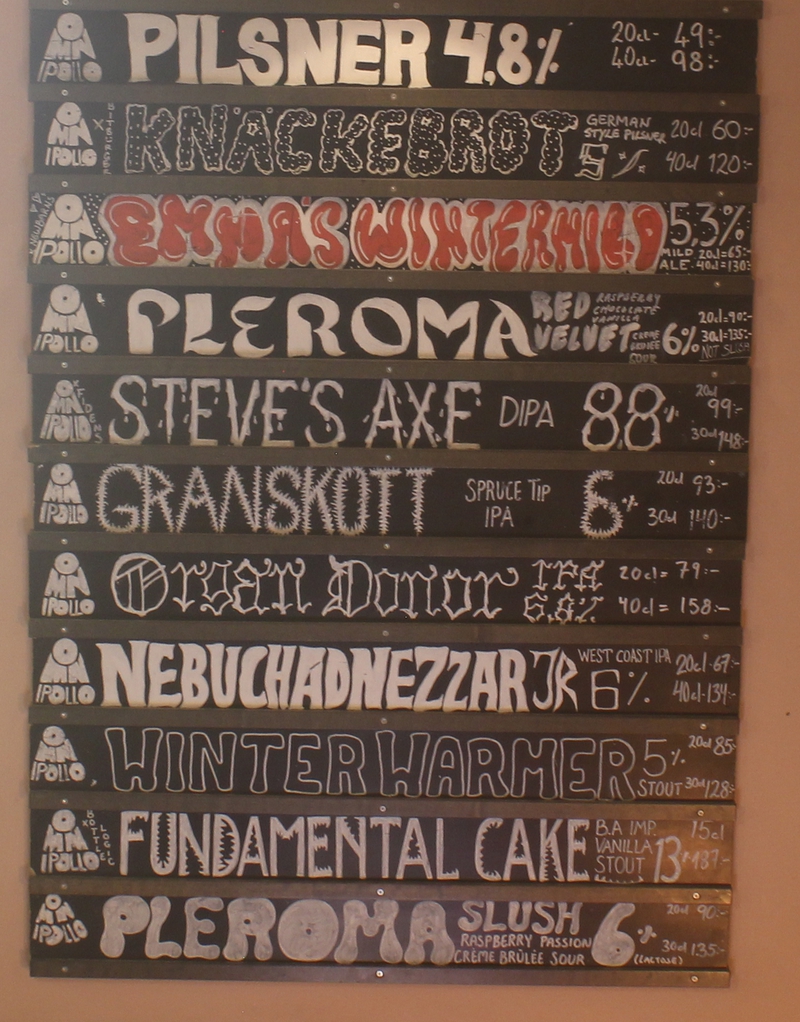 OMNIPOLLO PILSNER 4,8% 20cl- 49:-
40cl- 98:-
OMNIPOLLO X BITBURGER KNÄCKEBRÖT GERMAN STYLE PILSNER 5% 20cl 60:-
40cl 120:-
OMNIPOLLO EMMA'S WINTERMILD 5,3%
MILD ALE 20cl=65:-
40cl=130:-
OMNIPOLLO PLEROMA RED VELVET RASPBERRY CHOCOLATE VANILLA CRÈME BRÛLÉE SOUR 6% 20cl=90:-
30cl=135:-
NOT SLUSH
OMNIPOLLO X FIDENS STEVE'S AXE DIPA 8,8% 20cl 99:-
30cl 148:-
OMNIPOLLO GRANSKOTT SPRUCE TIP IPA 6% 20cl 93:-
30cl 140:-
OMNIPOLLO Organ Donor IPA 6,8% 20cl= 79:-
40cl= 158:-
OMNIPOLLO NEBUCHADNEZZAR JR WEST COAST IPA 6% 20cl-67:-
40cl-134:-
OMNIPOLLO WINTER WARMER 5% STOUT 20cl 85:-
30cl 128:-
OMNIPOLLO X BOTTLE LOGIC FUNDAMENTAL CAKE B.A IMP. VANILLA STOUT 13% 15cl
187:-
OMNIPOLLO PLEROMA SLUSH
RASPBERRY PASSION
CRÈME BRÛLÉE SOUR 6% (LACTOSE) 20cl 90:-
30cl 135:-